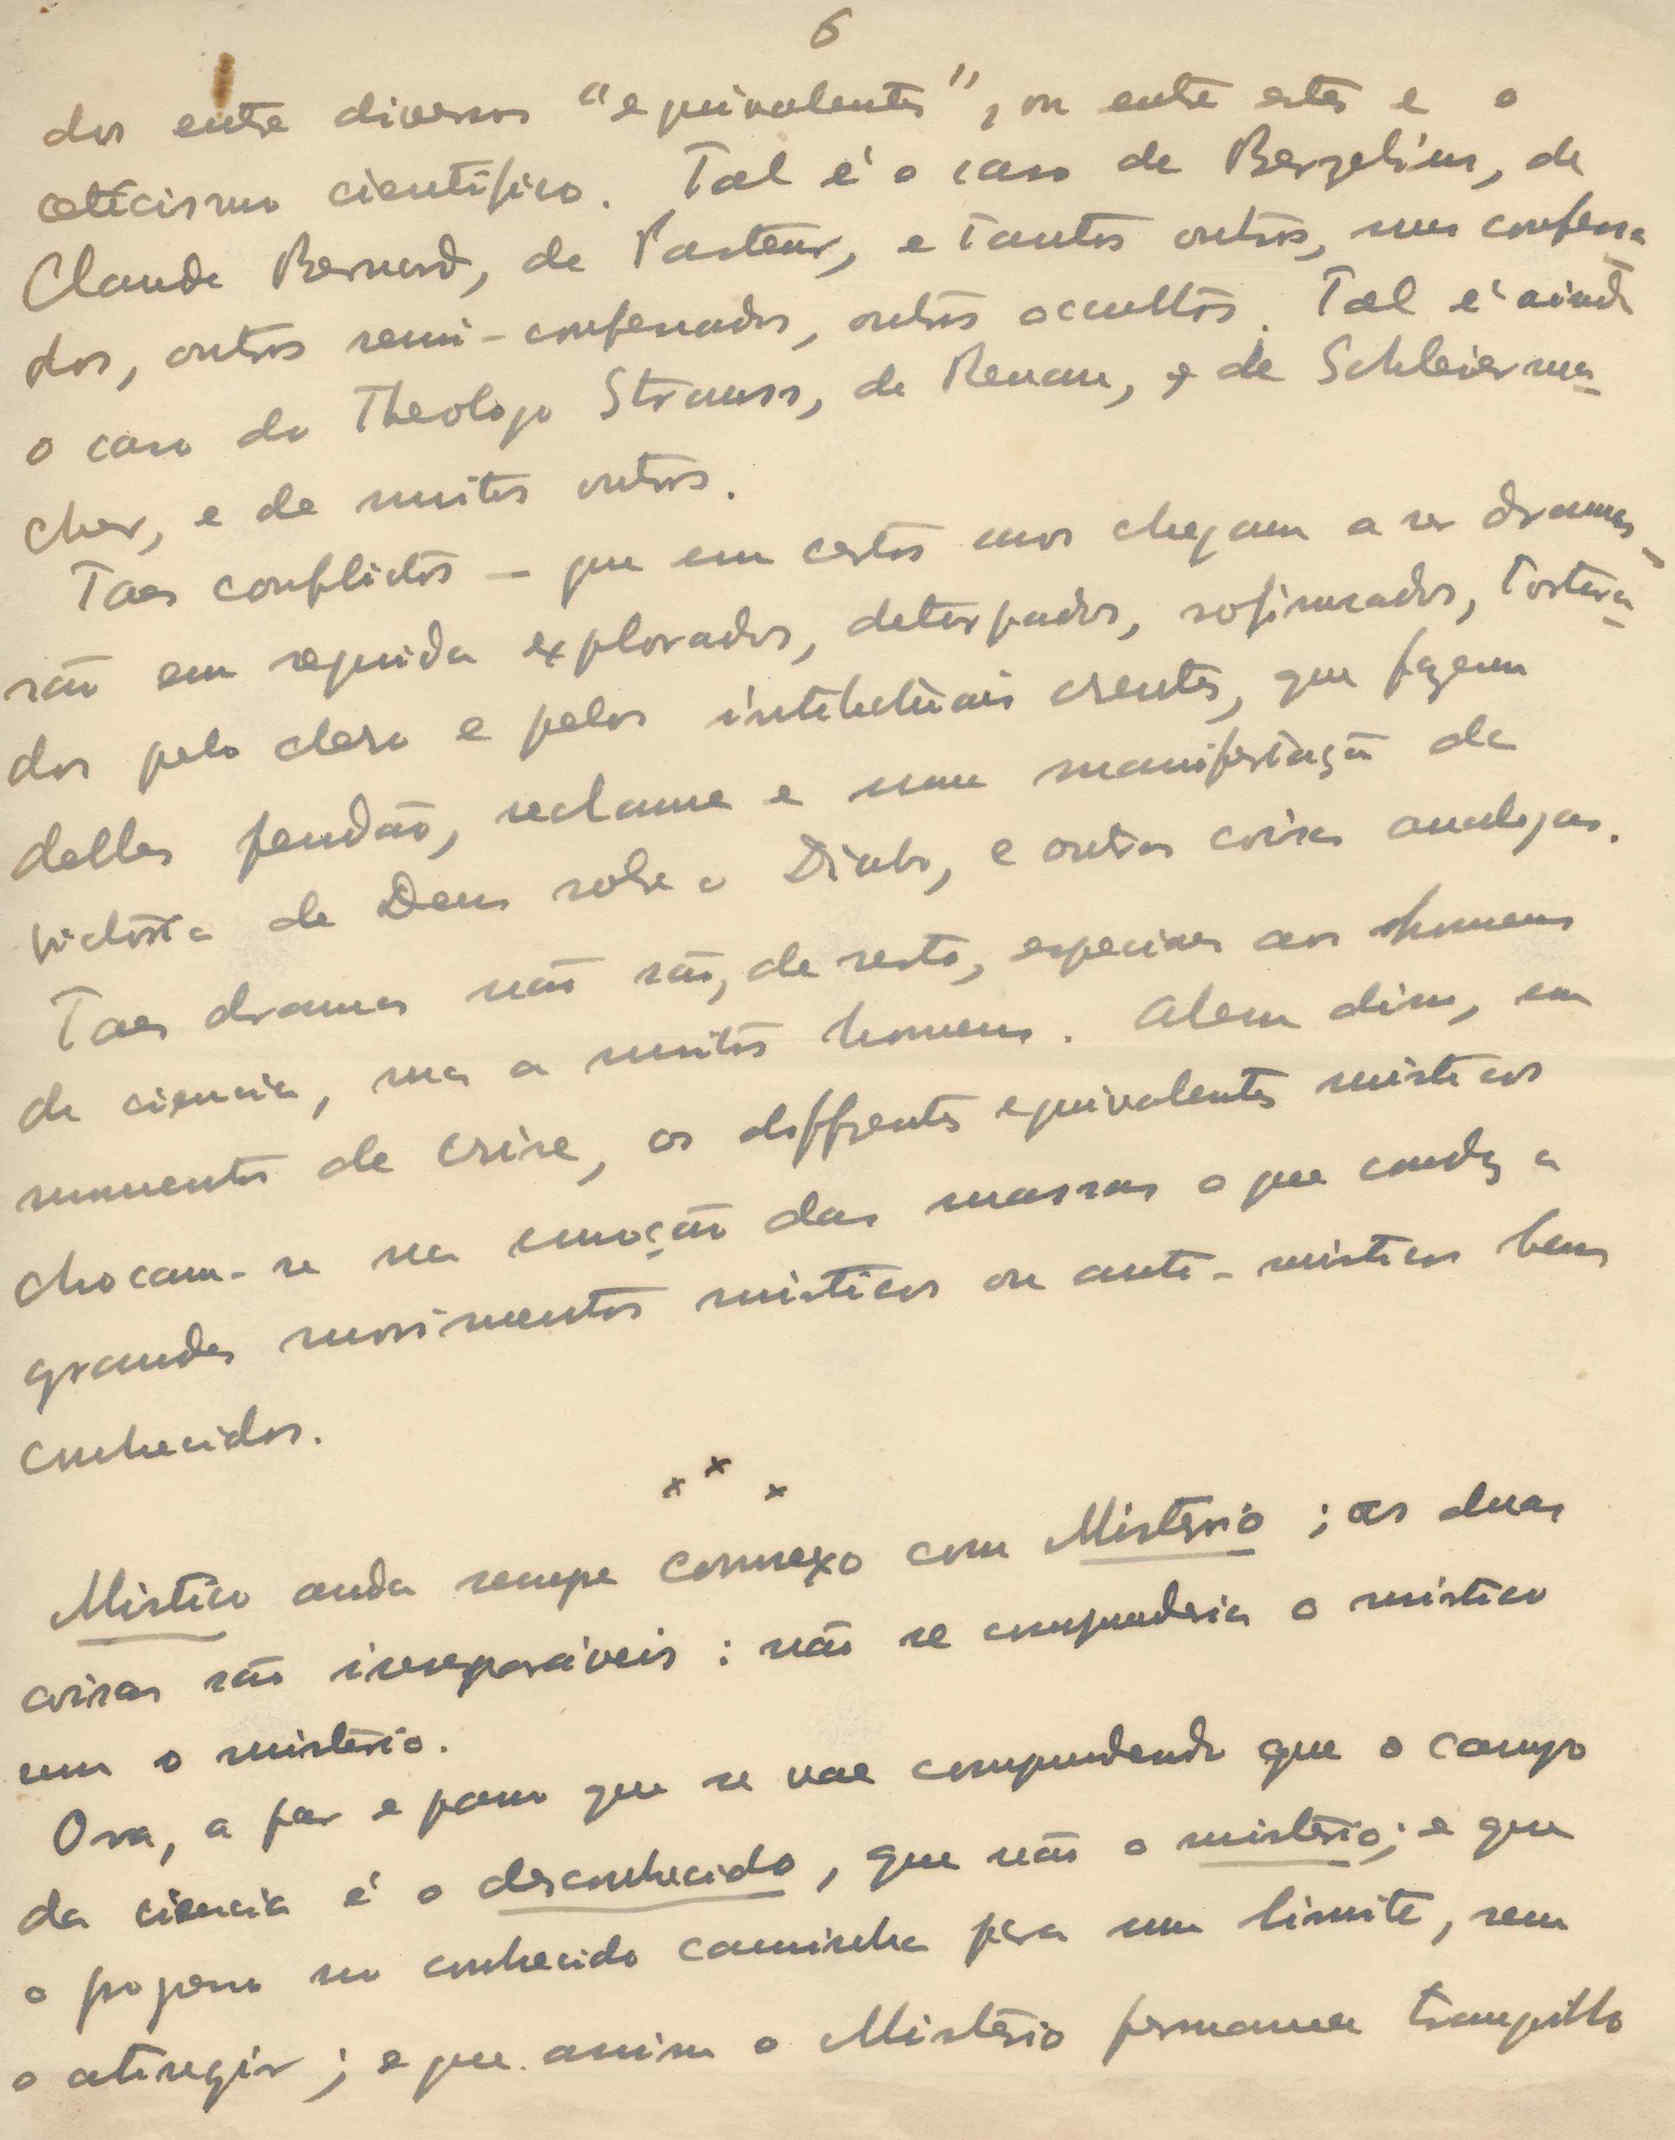 6
dos entre diversos "equivalentes", ou entre estes e o
ceticismo cientifico. Tal é o caso de Berzelius, de
Claude Bernard, de Pasteur, e tantos outros, uns confessa
dos, outros semi-confessados, outros occultos. Tal é ainda
o caso do Theologo Strauss, de Renan, e de Schleierma-
cher, e de muitos outros.
Taes conflictos – que em certos casos chegam a ser dramas –
são em seguida explorados, deturpados, sofismados, tortura-
dos pelo clero e pelos intelectuais crentes, que fazem
delles pendão, reclame e uma manifestação da
victória de Deus sobre o Diabo, e outras coisas analogas.
Taes dramas não são, de resto, especiaes aos homens
de ciencia, mas a muitos homens. Alem disso, em
momentos de crise, os differentes equivalentes misticos
chocam-se na emoção das massas o que conduz a
grandes movimentos misticos ou anti-misticos bem
conhecidos.
x x x
Mistico anda sempre connexo com Mistério; as duas
coisas são inseparáveis: não se compreenderia o mistico
sem o mistério.
Ora, a par e passo que se vae compreendendo que o campo
da ciencia é o desconhecido, que não o mistério; e que
o progresso no conhecido caminha para um limite, sem
o atingir; e que assim o Mistério permanece tranquillo